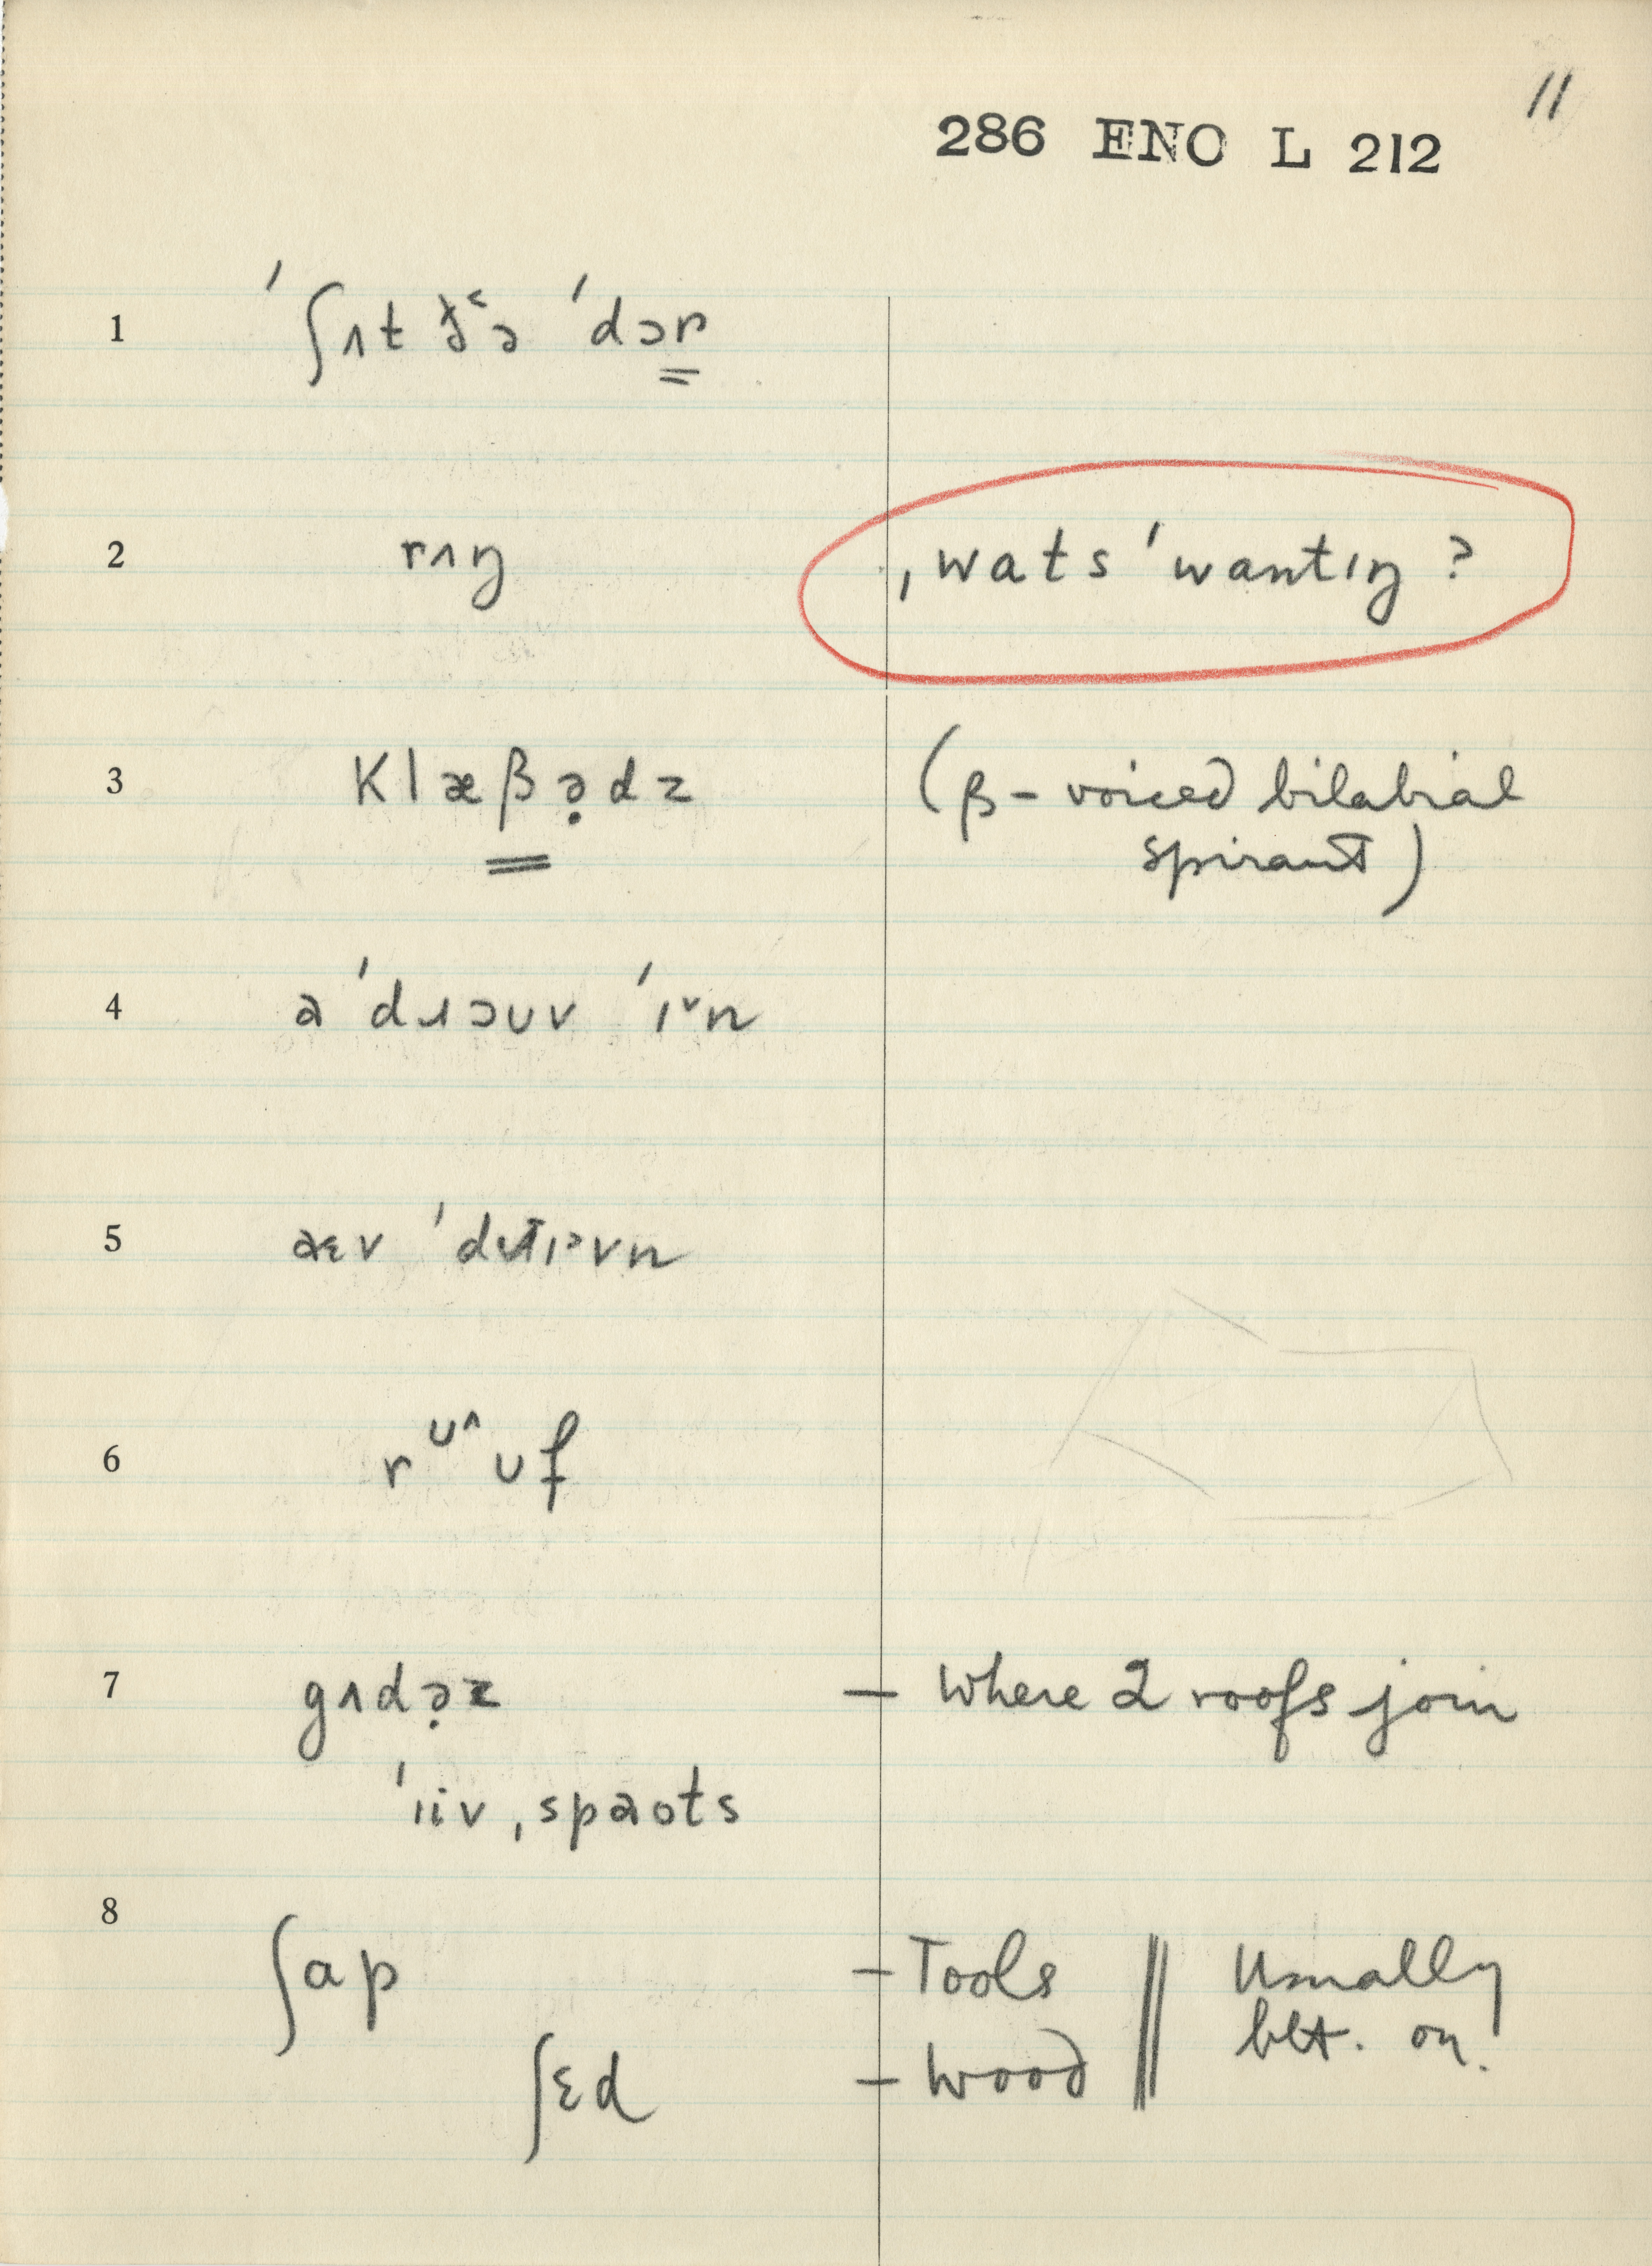 11
286 ENO L 212
1 ˈʃʌt ðə ˈdɔr
2 rʌŋ ˌwats ˈwantɪŋ ?
3 Klæβə̣dz (β – voiced bilabial
spirant)
4 ə ˈdɹɔuv ˈɪ˅n
5 æɛv
6 r ᴜ^ ᴜf
7 gʌdə̣z – Where 2 roofs join
ˈiiv ˌspaots
8
ʃap – Tools || Usually
blt. on.
ʃɛd – Wood